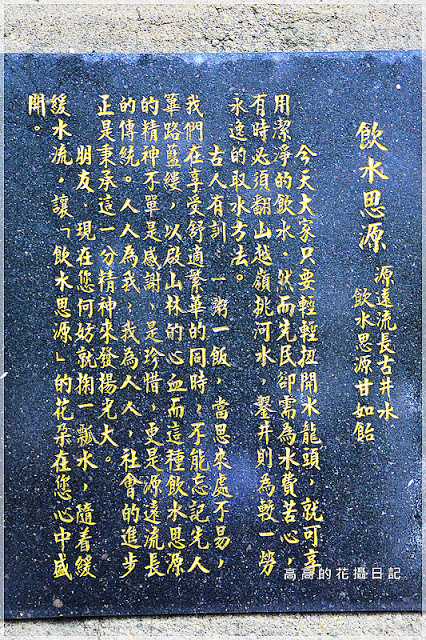 飲水思源
源遠流長古井水
飲水思源甘如飴
今天大家只要輕輕扭開水龍頭，就可享
用潔淨的飲水。然而先民卻需為水費苦心，
有時必須翻山越嶺挑河水，鑿井則為較一勞
永逸的取水方法。
古人有訓：一粥一飯，當思來處不易，
我們在享受舒適繁華的同時，不能忘記先人
篳路藍縷，以啟山林的心血而這種飲水思源
的精神不單是感謝，是珍惜，更是源遠流長
的傳統。人人為我，我為人人，社會的進步
正是秉承這一分精神來發揚光大。
朋友，現在您何妨就掬一瓢水，隨着緩
緩水流，讓「飲水思源」的花朵在您心中盛
開。
高高的花攝日記